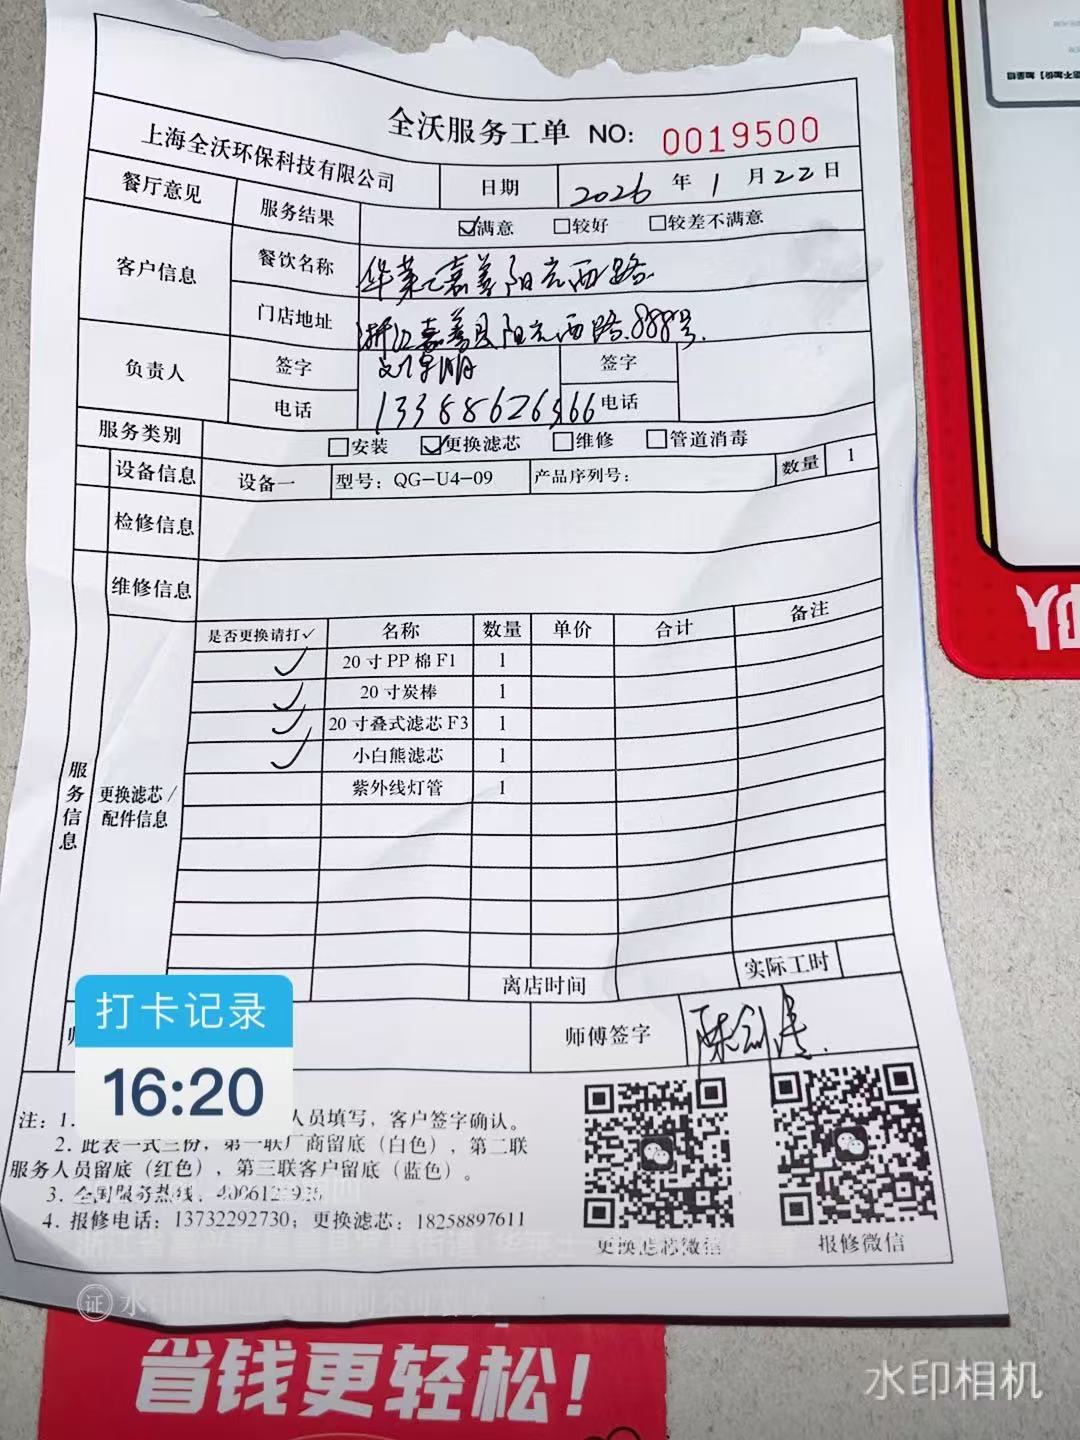 全沃服务工单 NO: 0019500
上海全沃环保科技有限公司 日期 2026 年 1 月 22 日
餐厅意见 服务结果 满意 较好 较差不满意
客户信息 餐饮名称 华莱士嘉善阳光西路
门店地址 浙江嘉善县阳光西路888号.
负责人 签字 签字
电话 电话
服务类别 安装 更换滤芯 维修 管道消毒
设备信息 设备一 型号: QG-U4-09 产品序列号: 数量 1
检修信息
维修信息
服务信息
更换滤芯/配件信息
是否更换请打✓ 名称 数量 单价 合计 备注
✓ 20寸PP棉F1 1
✓ 20寸炭棒 1
✓ 20寸叠式滤芯F3 1
✓ 小白熊滤芯 1
紫外线灯管 1
离店时间 实际工时
师傅签字
打卡记录
16:20
注: 1. 人员填写，客户签字确认。
2. 此表一式三份，第一联厂商留底（白色），第二联
服务人员留底（红色），第三联客户留底（蓝色）。
3. 全国服务热线:
4. 报修电话: 13732292730; 更换滤芯: 18258897611
更换滤芯微信 报修微信
省钱更轻松!
水印相机